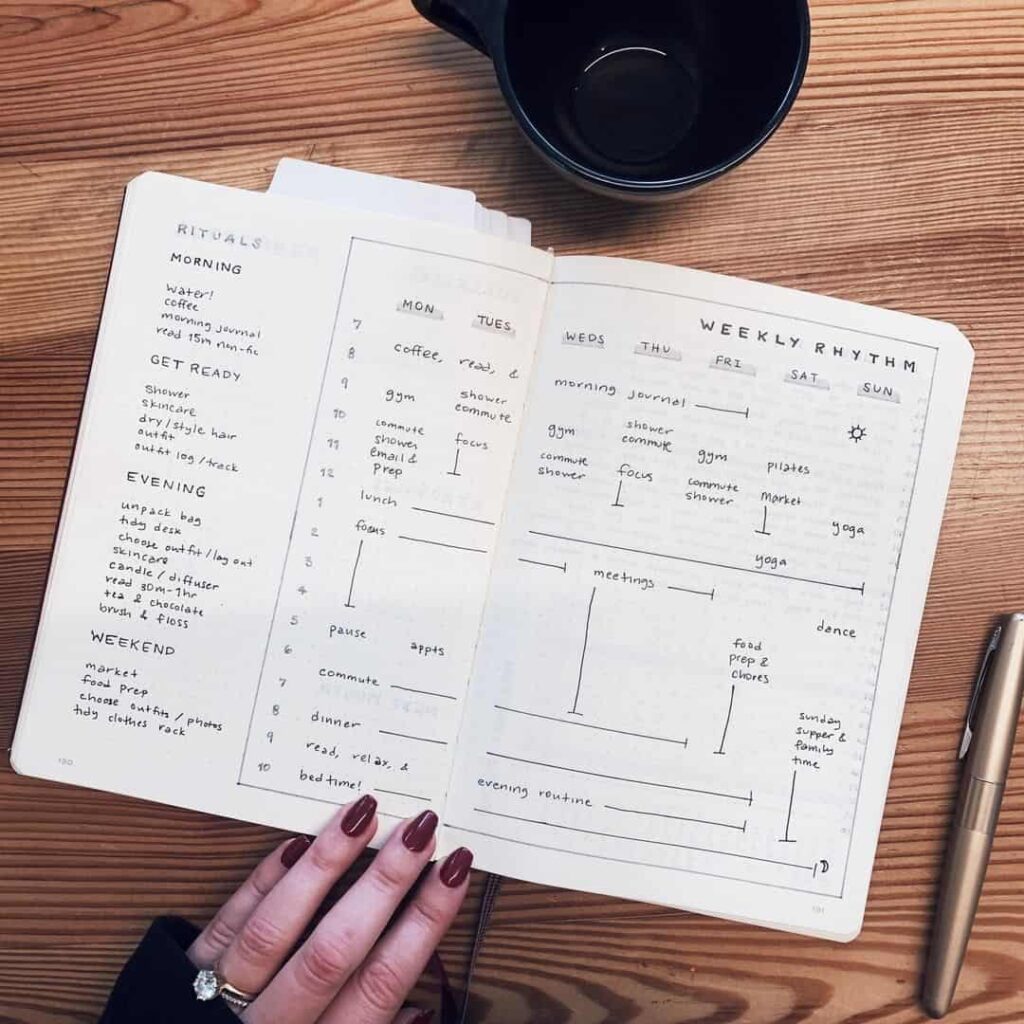 RITUALS
MORNING
water!
coffee
morning journal
read 15m non-fic
GET READY
shower
skincare
dry/style hair
outfit
outfit log/track
EVENING
unpack bag
tidy desk
choose outfit/lay out
skincare
candle/diffuser
read 30m-1hr
tea & chocolate
brush & floss
WEEKEND
market
food prep
choose outfits/photos
tidy clothes rack
190
WEEKLY RHYTHM
MON TUES WEDS THU FRI SAT SUN
7
8 coffee, read, & morning journal
9 gym shower gym shower gym pilates
commute commute
10 commute focus commute focus commute market
shower shower shower
11 email &
prep
yoga
12
1 lunch yoga
2 focus meetings
3
4
dance
5 pause appts food
prep &
chores
6
7 commute
sunday
supper &
family
time
8 dinner
9 read, relax, & evening routine
10 bedtime!
191